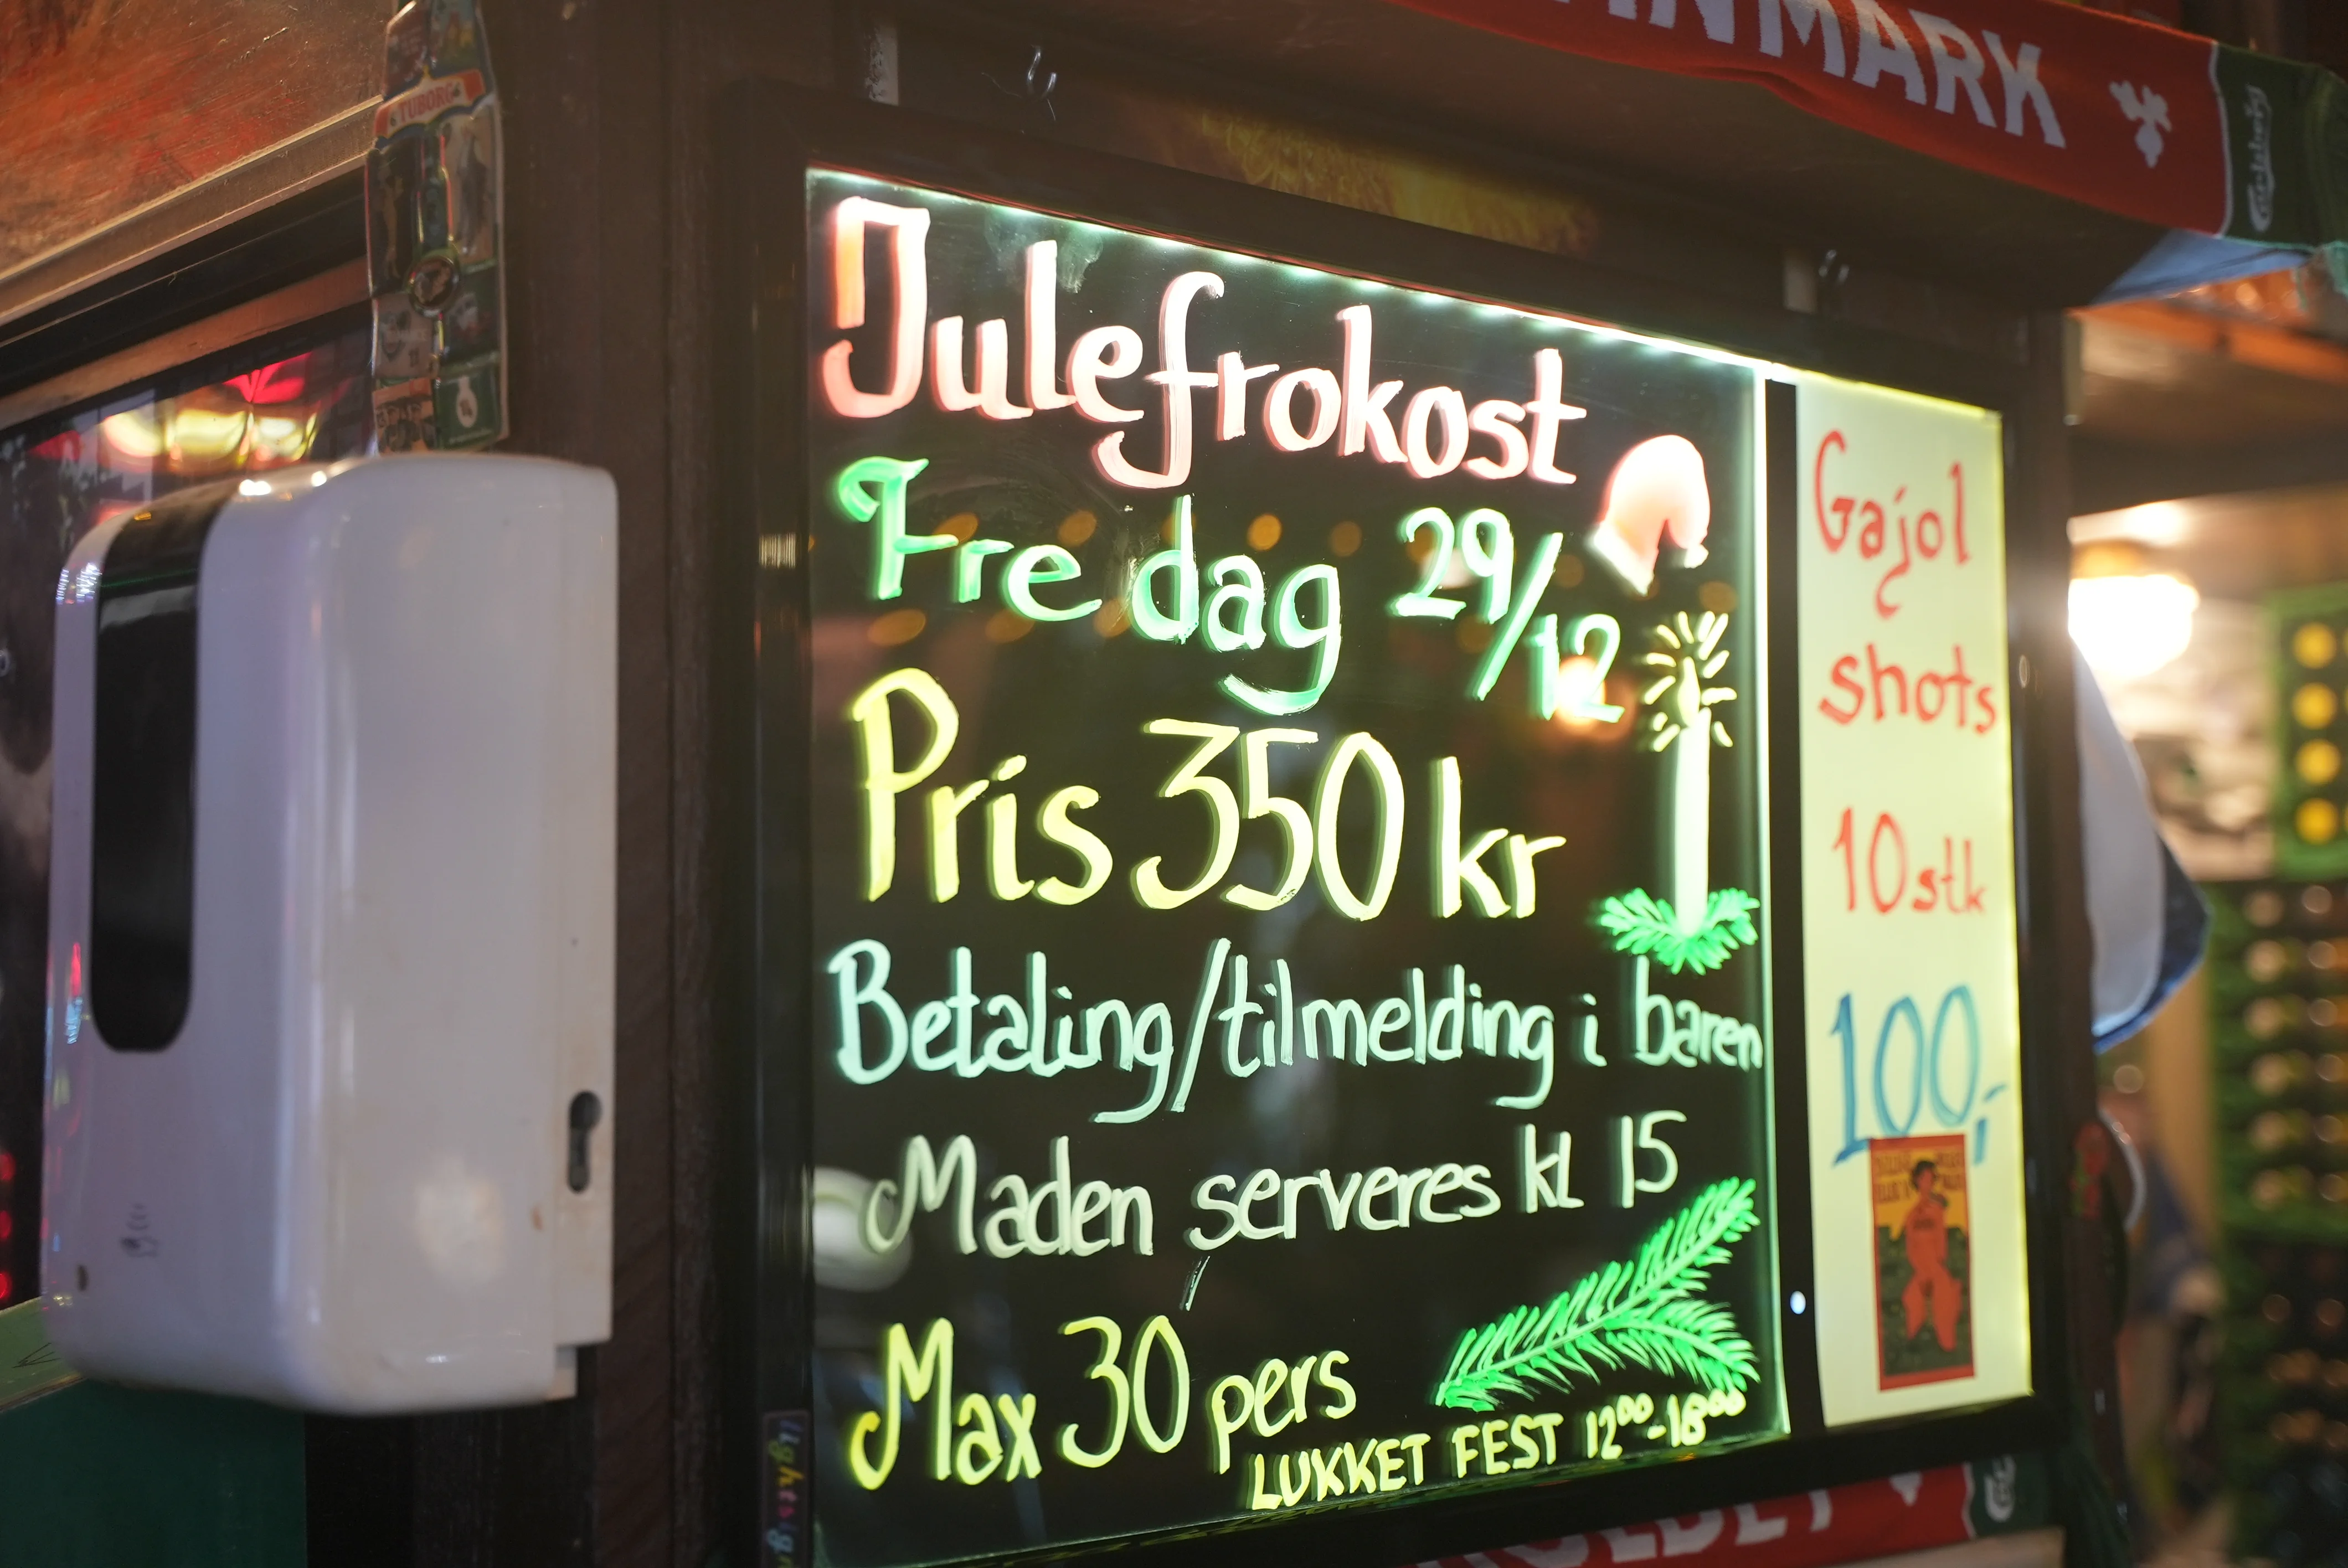 TUBORG
NMARK
Carlsberg
Julefrokost
Fredag 29/12
Pris 350 kr
Betaling/tilmelding i baren
Maden serveres kl 15
Max 30 pers
LUKKET FEST 12⁰⁰-18⁰⁰
Gajol
shots
10 stk
100,-